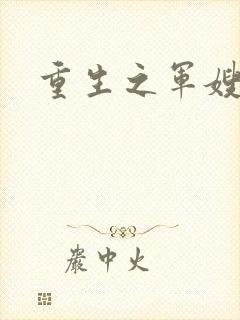 重生之军嫂
岩中火